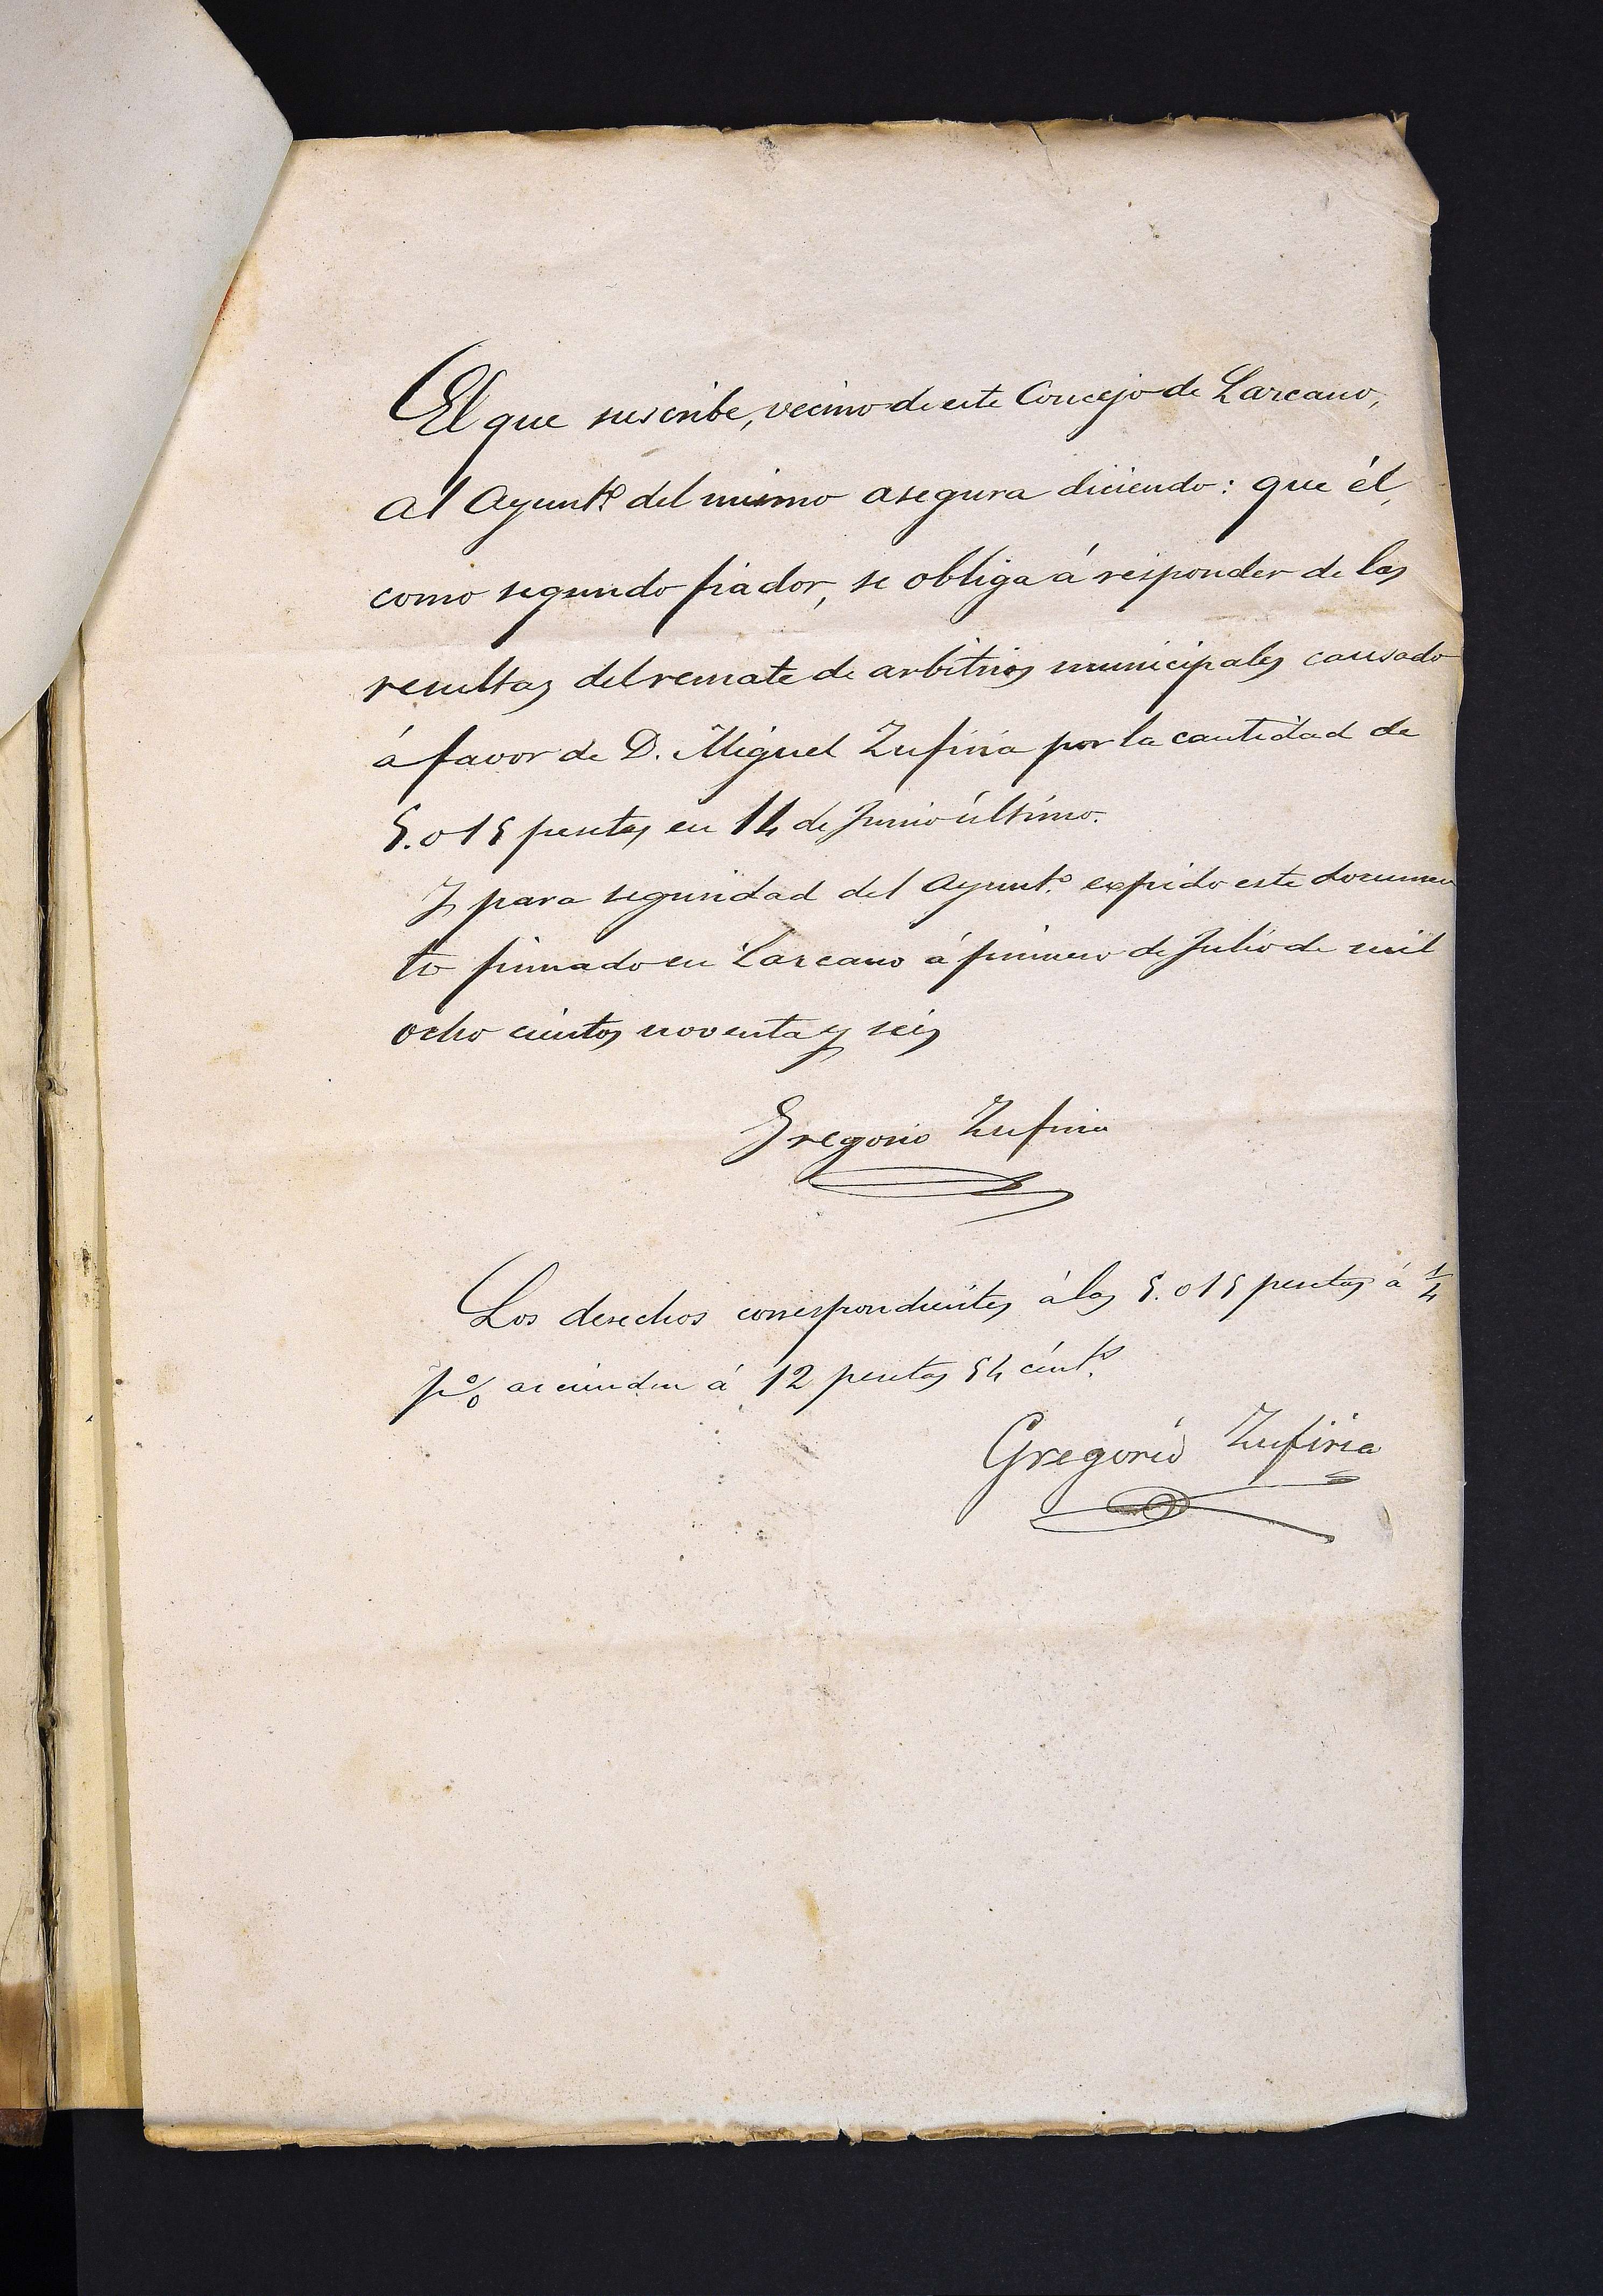 El que suscribe, vecino de este Concejo de Lazcano,
al Ayunt.º del mismo asegura diciendo: que él,
como segundo fiador, se obliga á responder de las
resultas del remate de arbitrios municipales causado
á favor de D. Miguel Zufiria por la cantidad de
5.015 pesetas en 14 de Junio último.
Y para seguridad del Ayunt.º expido este documen
to firmado en Lazcano á primero de Julio de mil
ocho cientos noventa y seis
Gregorio Zufiria
Los derechos correspondientes á las 5.015 pesetas á 1/4
p% ascienden á 12 pesetas 54 cént.s
Gregorio Zufiria